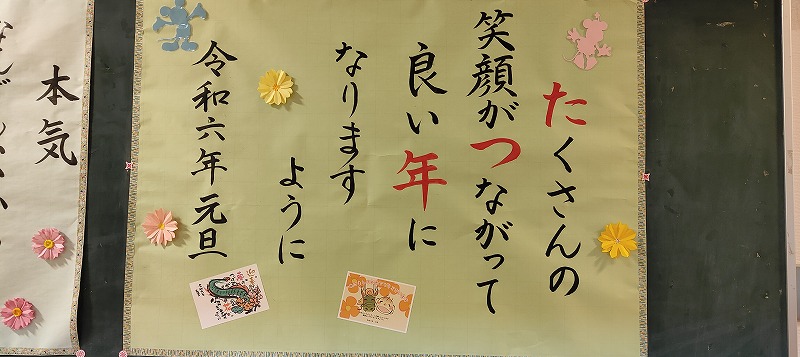 たくさんの
笑顔がつながって
良い年に
なります
ように
令和六年元旦
本気